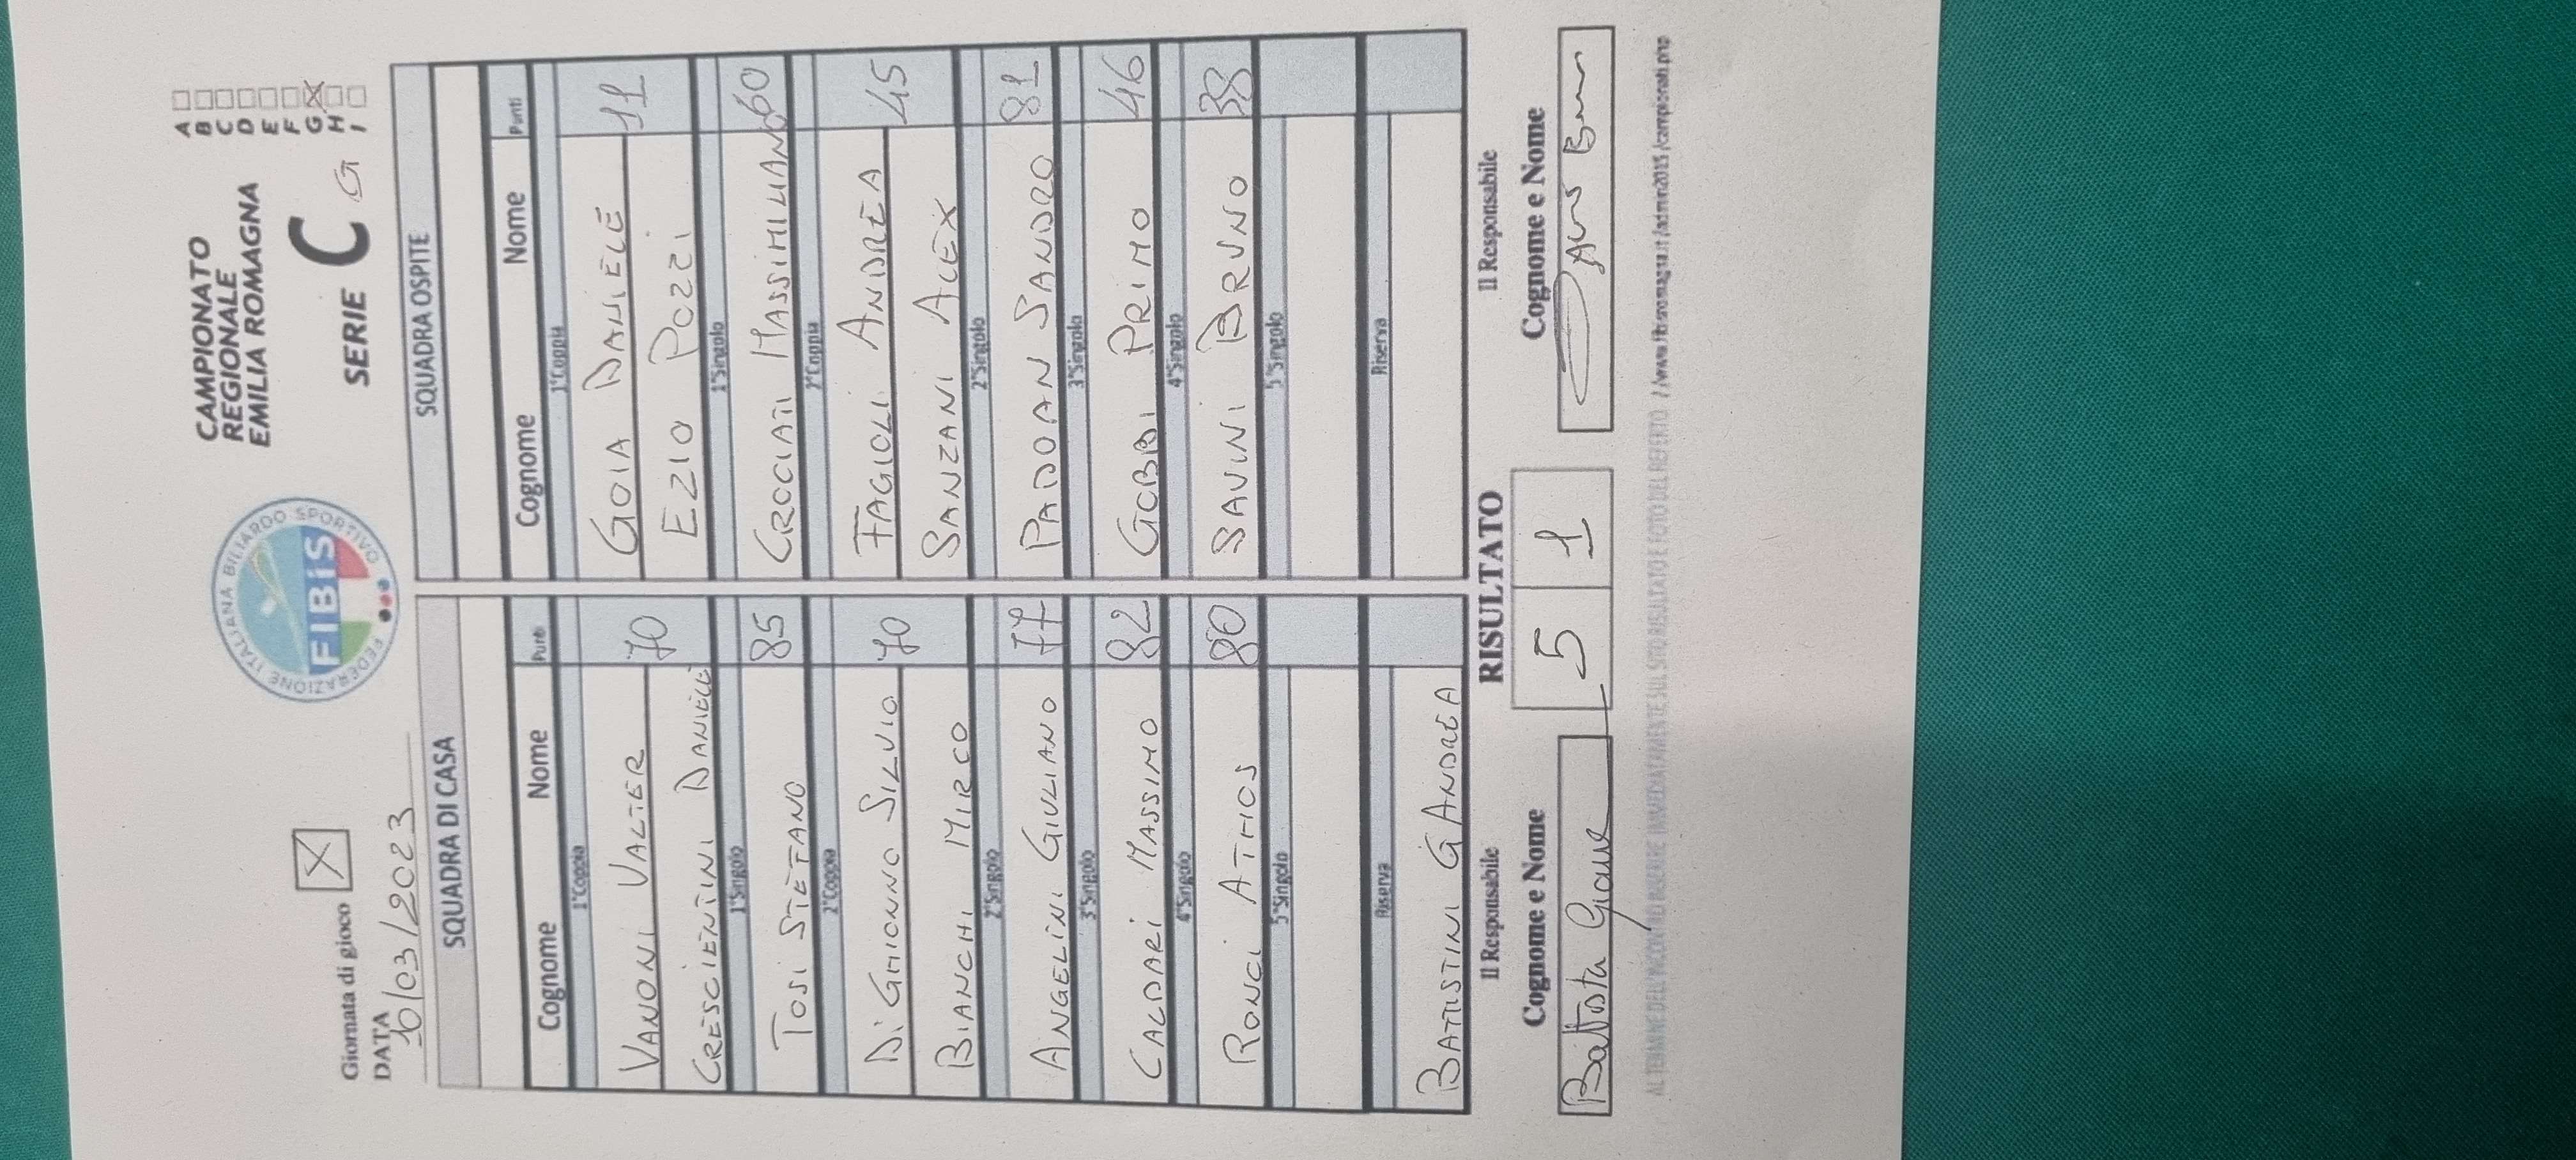 Giornata di gioco X
DATA
10/03/2023
FEDERAZIONE ITALIANA BILIARDO SPORTIVO
FIBiS
CAMPIONATO
REGIONALE
EMILIA ROMAGNA
SERIE C G
A
B
C
D
E
F
G X
H
I
SQUADRA DI CASA
Cognome Nome Punti
1°Coppia
VANONI VALTER 70
CRESCIENTINI DANIELE
1°Singolo
TOSI STEFANO 85
2°Coppia
DI GHIONNO SILVIO 70
BIANCHI MIRCO
2°Singolo
ANGELINI GIULIANO 77
3°Singolo
CALDARI MASSIMO 82
4°Singolo
RONCI ATHOS 80
5°Singolo
Riserva
BATTISTINI G ANDREA
SQUADRA OSPITE
Cognome Nome Punti
1°Coppia
GOIA DANIELE 11
EZIO POZZI
1°Singolo
CROCIATI MASSIMILIANO 60
2°Coppia
FAGIOLI ANDREA 45
SANZANI ALEX
2°Singolo
PADOAN SANDRO 81
3°Singolo
PRIMO 46
4°Singolo
SAVINI BRUNO 38
5°Singolo
Riserva
Il Responsabile
Cognome e Nome
RISULTATO
5 1
Il Responsabile
Cognome e Nome